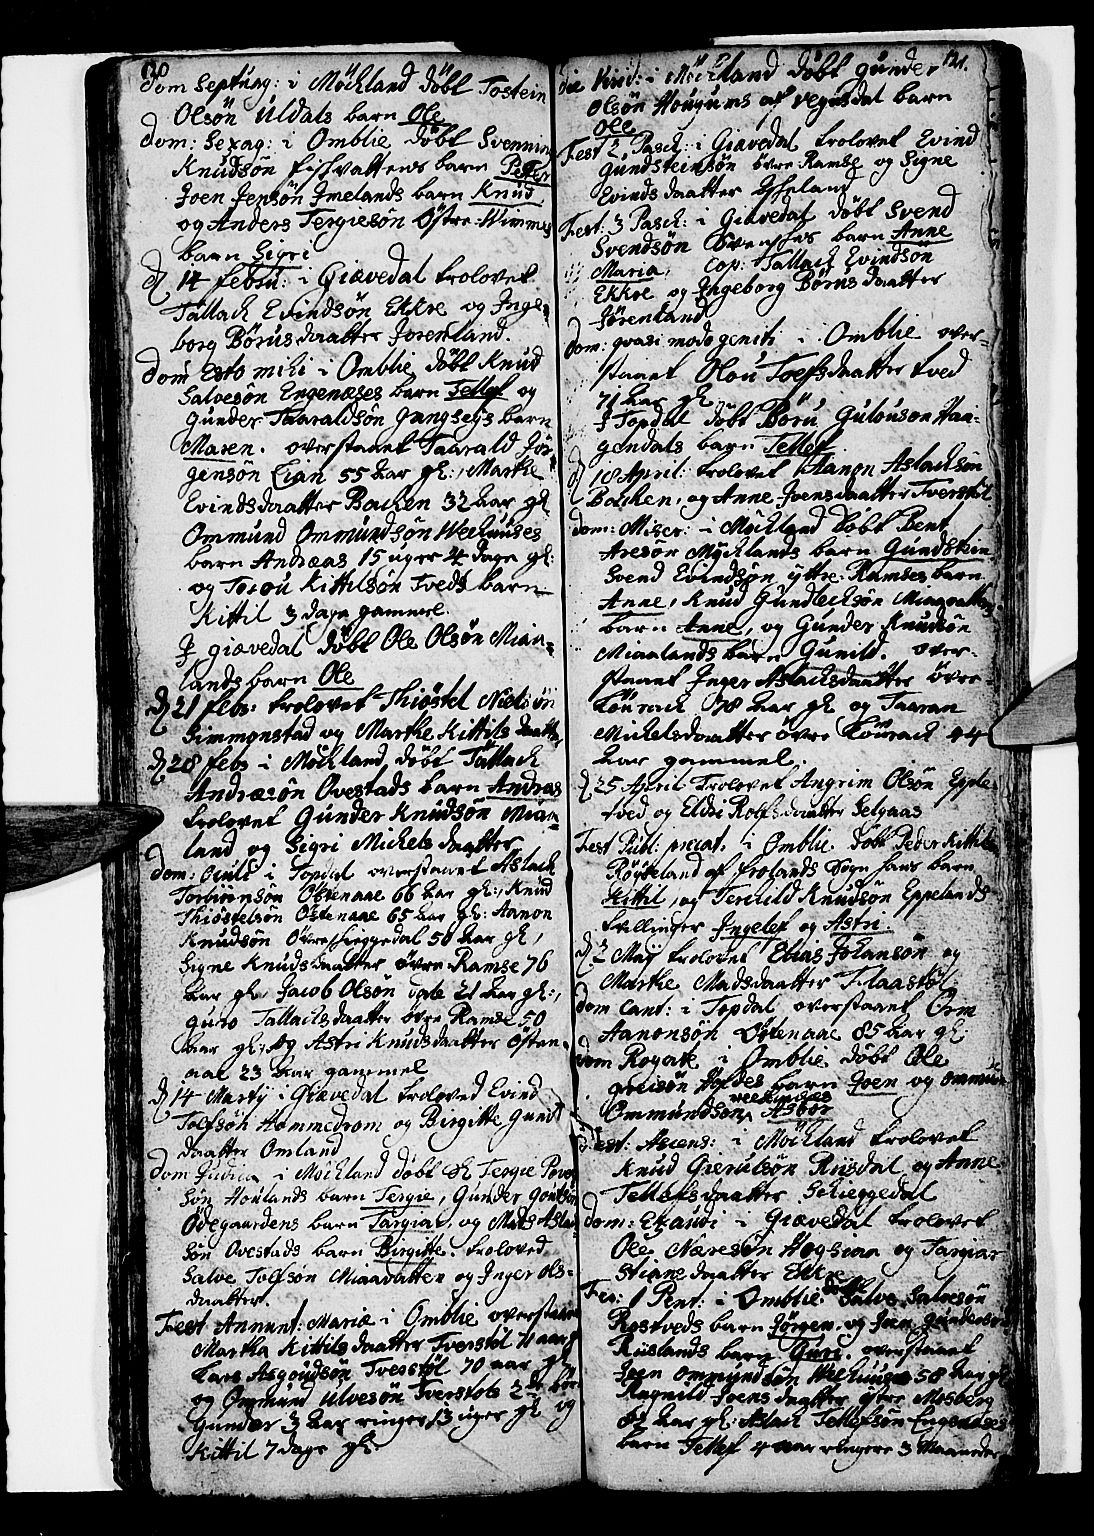 120
dom Septuag: i Möchland döbt Tostein
Olsön Uldals barn Ole
dom: Sexag: i Omblie döbt Svenning
Knudsön fischvattens barn Peder
Joen Jensön Jmelands barn Knud
og Anders Tergiesön Östre Wimmes
barn Sigri
d 14 febru: i Giævedal trolovet
Tallach Evindsön Ekkre og Jnge-
borg Börusdaatter Jorenland.
dom Esto mihi i Omblie döbt Knud
Salvesön Engenæses barn Tellef og
Gunder Taaraldsön Gangseys barn
Maren. overstaaet Taarald Jör-
gensön Lian 55 aar gl: Marthe
Evindsdaatter Bachen 32 aar gl
Ommund Ommundsön Weehuuses
barn Andreas 15 uger 4 dage gl:
og Tosou Kittilsön Tveds barn
Kittil 3 dage gammel.
J giævedal döbt Ole Olsön Mian-
lands barn Ole
d 21 febr: trolovet Thiöstel Nielsön
Simmonstad og Marthe Kittilsdaatter
d 28 febr i Möchland, döbt Tallach
Andræsön Ovestads barn Andreas
trolovet Gunder Knudsön Mian-
land og Sigri Michelsdaatter
dom: Oculi i Topdal overstaaet Aslach
Torbiörnsön Östenaae 66 aar gl:, Knud
Thiöstelsön Östenaae 65 aar gl: Aanon
Knudsön Övreschieggedal 50 aar gl,
Signe Knudsdaatter övre Ramse 76
aar gl, Jacob Olsön 21 aar gl:,
Guro Tallachsdaatter övre Ramse 50
aar gl: og Astri Knudsdaatter Östen-
aae 23 aar gammel
d 14 Martij i Giævedal troloved Evind
Tolfsön Hommedrom og Birgitte Gund
daatter Omland
dom Judica i Mochland döbt Tergie
sön Houlands barn Tergie, Gunder
Ödegaardens barn Targiær, og Mads Asla-
sön Ovestads barn Birgitte. troloved
Salve Tolfsön Miaavatten og Jnger Ols-
daatter.
Fest Annunt: Mariæ i Omblie overstaaet
Martha Kittilsdaatter Tverstöl 11 aar gl
Lars Asgoudsön Tvesstöl 70 aar gl
og Ommund Ulvesön Tverstöls 2de börn
Gunder 3 aar ringer 13 uger gl og
Kittil 7 dage gl.
121.
die Virid: i Möchland döbt Gunder
Olsön Hougums af Vegusdal barn
Ole
Fest 2 Pasch: i Giævedal trolovet Evind
Gundsteinsön övre Ramse og Signe
Evindsdaatter
Fest: 3 Pasch: i Giævedal döbt Svend
Svendsön Svenches barn Anne
Maria, Cop: Tallach Evindsön
Ekkre og Jngeborg Börusdaatter
Jörenland
dom: quasi modo geniti i Omblie over-
staaet Olou Toefsdaatter Tved
71 aar gl,
J Topdal döbt Böru Gulouson Haa-
gendals barn Tellef
d 18 April: trolovet Aanon Aslachsön
Bachen, og Anne Joensdaatter Tverstöl
dom: Miser: i Möchland döbt Bent
Aresön Möchlands barn Gundstein
Svend Evindsön yttre Ramses barn
Anne, Knud Gundlechsön Miaavattens
barn Anne, og Gunder Knudsön
Miaalands barn Gunild. over-
staaet Jnger Aslachsdaatter övre-
Löurach 78 aar gl og Taaran
Michelsdaatter övre Löurach 44
aar gammel.
d 25 April trolovet Angrim Olsön Epple-
tved og Eldri Rolfsdaatter Selgaas
Fest Publ: precat: i Omblie döbt Peder Kittils
Röyseland af frolands Sogn hans barn
Kittil, og Terchild Knudsön Eppelands
tvellinger Jngelef og Astri.
d 2 Maj trolovet Elias Johansön og
Marthe Madsdaatter Flaastöl
dom Cant: i Topdal overstaaet Orm
Aanonsön Östenaae 85 aar gl:
dom Rogate i Omblie döbt Ole
Greisön Hyldes barn Joen og Ommun
Ommundsön weehuuses Asbör
Fest: Ascens: i Möchland trolovet
Knud Gierulsön Riisdal og Anne
Tellefsdaatter Schieggedal
dom: Exaudi i Giævedal trolovet
Ole Næresön Hogsiaa og Targiær
Stianedaatter Ekkre
Fer: 1 Pent: i Omblie döbt Salve Salvesön
Rostveds barn Jörgen, og Joen Gundersön
Riislands barn Guri. overstaaet
Joen Ommundsön Weehuuse 58 aar gl
Ragnild Joensdaatter ytre Mosberg
82 aar gl: Aslach Tellefsön Engenæses
barn Tellef 4 aar ringere 3 Maaneder